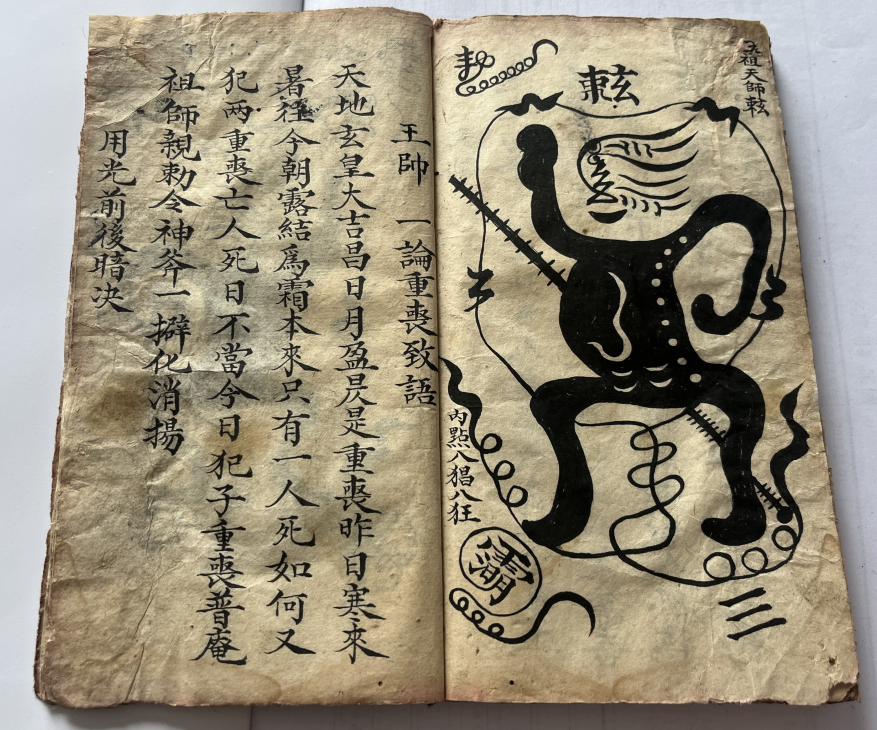 祖天師
内點八猖八狂
三
王帥 一論重喪致語
天地玄皇大吉昌日月盈昃是重喪昨日寒來
暑徃今朝露結爲霜本來只有一人死如何又
犯两重喪亡人死日不當今日犯子重喪普庵
祖師親勅令神斧一擗化消揚
用光前後暗决